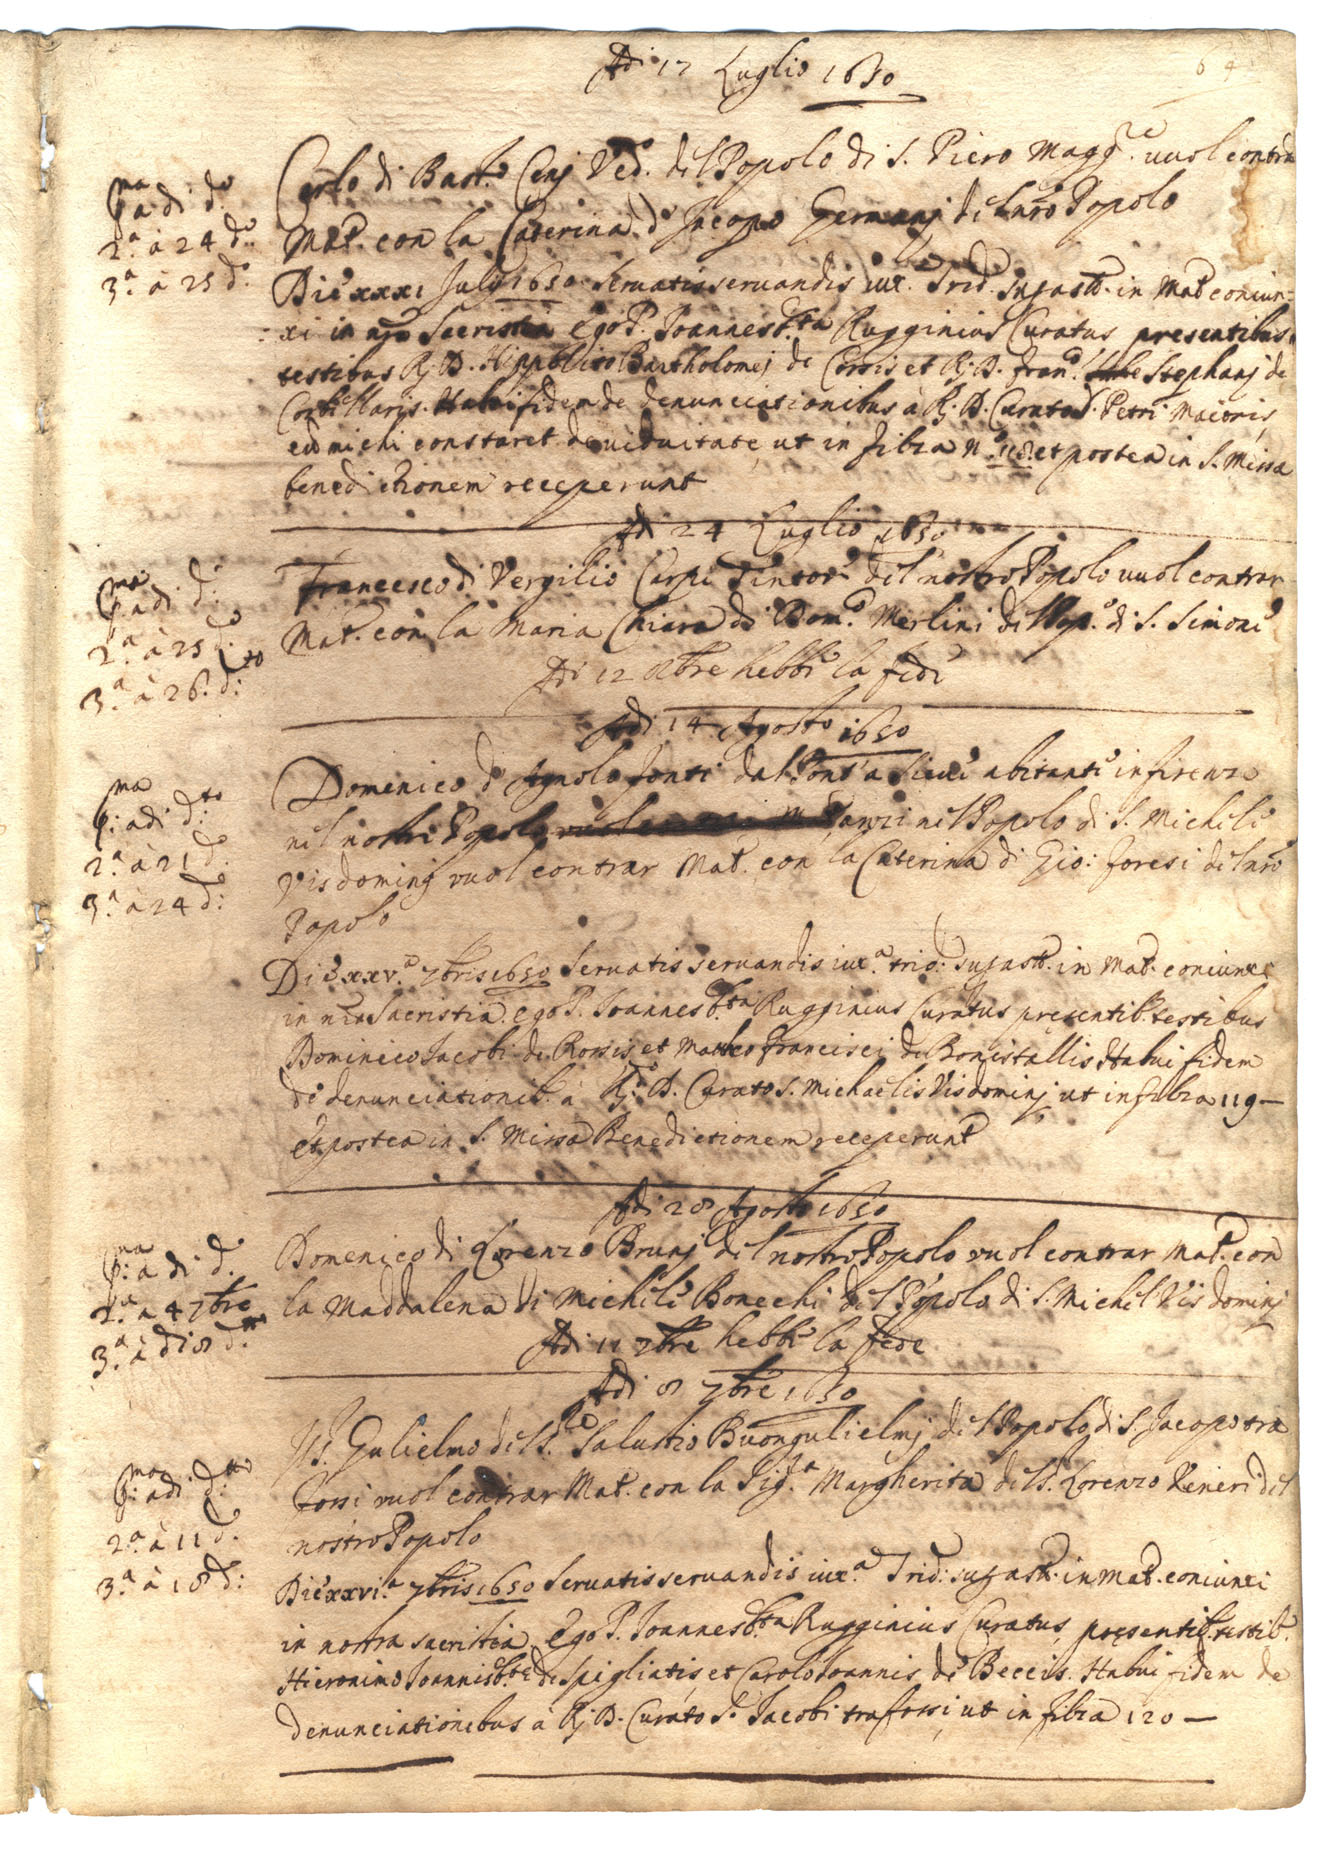 Adi 17 Luglio 1650
64
Carlo di Bast.o Cenj Ved.o del Popolo di S. Piero Magg.re vuol contrar
Mat.o con la Caterina d.o Jacopo Germanj del nro Popolo
p.ma adi d.o
2.a à 24 d.o
3.a à 25 d.o
Die xxxi Julij 1650 seruatis seruandis iux.a Trid. in Mat. coniun-
xi in nra Sacristia ego P. Joannes b.ta Rugginius Curatus presentibus
testibus R. D. Hippolito Bartholomej de Corsis et R. D. Fran.o Stephanj de
Habui fidem de denunciationibus à R. D. Curato S. Petri Maioris
michi constaret de uiduitate, ut in filza n.o 118 et postea in S. Missa
benedictionem receperunt
Adi 24 Luglio 1650
Francesco di Vergilio Carpi Tintor del nostro Popolo vuol contrar
Mat. con la Maria Chiara di Dom.o Merlini del Pop.o di S. Simone
Adi 12 8bre hebbi la fede
p.ma adi d.o
2.a à 25 d.o
3.a à 26 d.to
Adi 14 Agosto 1650
Domenico d.o Agnolo Fonti dal Pont' a Sieve abitante in firenze
nel nostro Popolo vuol nel Popolo di S. Michele
Visdominj vuol contrar Mat.o con la Caterina di Gio: Foresi del nro
Popolo
p.ma adi d.to
2.a à 21 d.o
3.a à 24 d.
Die xxv.a 7bris 1650 Seruatis seruandis iux.a trid. in Mat. coniunxi
in nra Sacristia ego P. Joannes b.ta Rugginius Curatus presentib. testibus
Dominico Jacobi de Rossis et Matteo Francisci de Bonistallis Habui fidem
de denunciationib. à R. D. Curato S. Michaelis Visdominj ut in filza 119 —
et postea in S. Missa Benedictionem receperunt
Adi 28 Agosto 1650
Domenico di Lorenzo Brunj del nostro Popolo vuol contrar Mat.o con
la Maddalena di Michele Bonechi del Popolo di S. Michel Visdominj
Adi 11 7bre hebbi la fede
p.ma a di d.o
2.a à 4 7bre
3.a à di 8 d.to
Adi 8 7bre 1650
Il S. Gulielmo del S.re Salustio Buongulielmj del Popolo di S. Jacopo tra
fossi vuol contrar Mat.o con la Sig.ra Margherita del S. Lorenzo Veneri del
nostro Popolo
p.ma adi d.tto
2.a à 11 d.o
3.a à 18 d:
Die xxvi.a 7bris 1650 Seruatis seruandis iux.a Trid: in Mat. coniunxi
in nostra sacristia, ego P. Joannes b.ta Rugginius Curatus, presentib. testib.
Hieronimo Joannis b.te de Spigliatis, et Carolo Joannis de Beccis. Habui fidem de
denunciationibus à R. D. Curato S.ti Jacobi trafossi, ut in filza 120 —